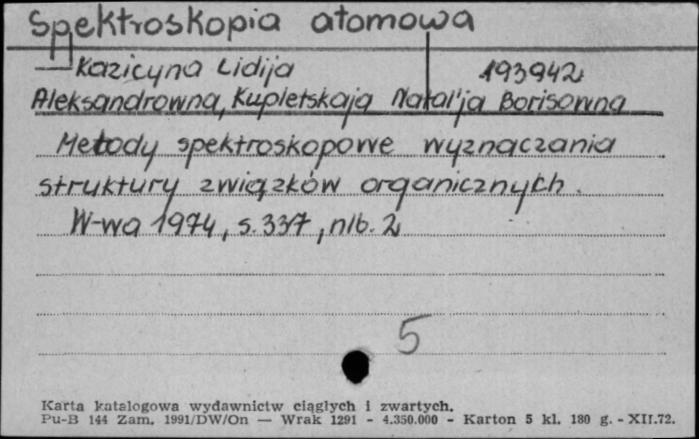 Spektroskopia atomowa
Kazicyna Lidija 193942
Aleksandrowna, Kupletskaja Natal'ja Borisowna
Metody spektroskopowe wyznaczania
struktury związków organicznych.
W-wa 1974, s. 337, nlb. 2
5
Karta katalogowa wydawnictw ciągłych i zwartych.
Pu-B 144 Zam. 1991/DW/On — Wrak 1291 - 4.350.000 - Karton 5 kl. 180 g. - XII.72.